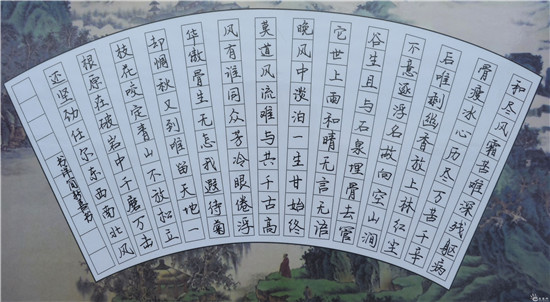 和尽风霜苦难深残躯病
骨瘦冰心历尽万苦千辛
后唯剩幽香放上林红尘
不意逐浮名故向空山涧
谷生且与石泉埋骨去管
它世上雨和晴无言无语
晚风中淡泊一生甘始终
莫道风流难与共千古高
风有谁同众芳冷眼倦浮
华傲骨生无忘我瑕待菊
却惆秋又到唯留天地一
枝花咬定青山不放松立
根原在破岩中千磨万击
还坚劲任尔东西南北风